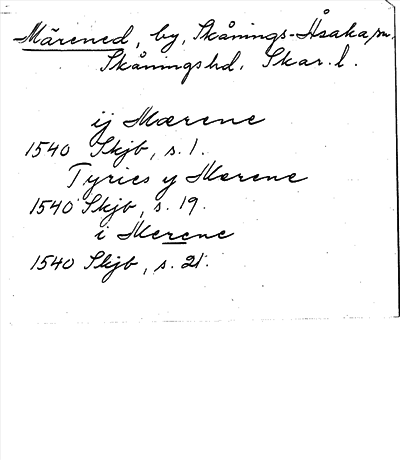 Märened, by, Skånings-Åsaka sn.
Skånings hd, Skar. l.
ij Mærene
1540 Skjb, s. 1.
Tyrics y Merene
1540 Skjb, s. 19.
i Merene
1540 Skjb, s. 21.